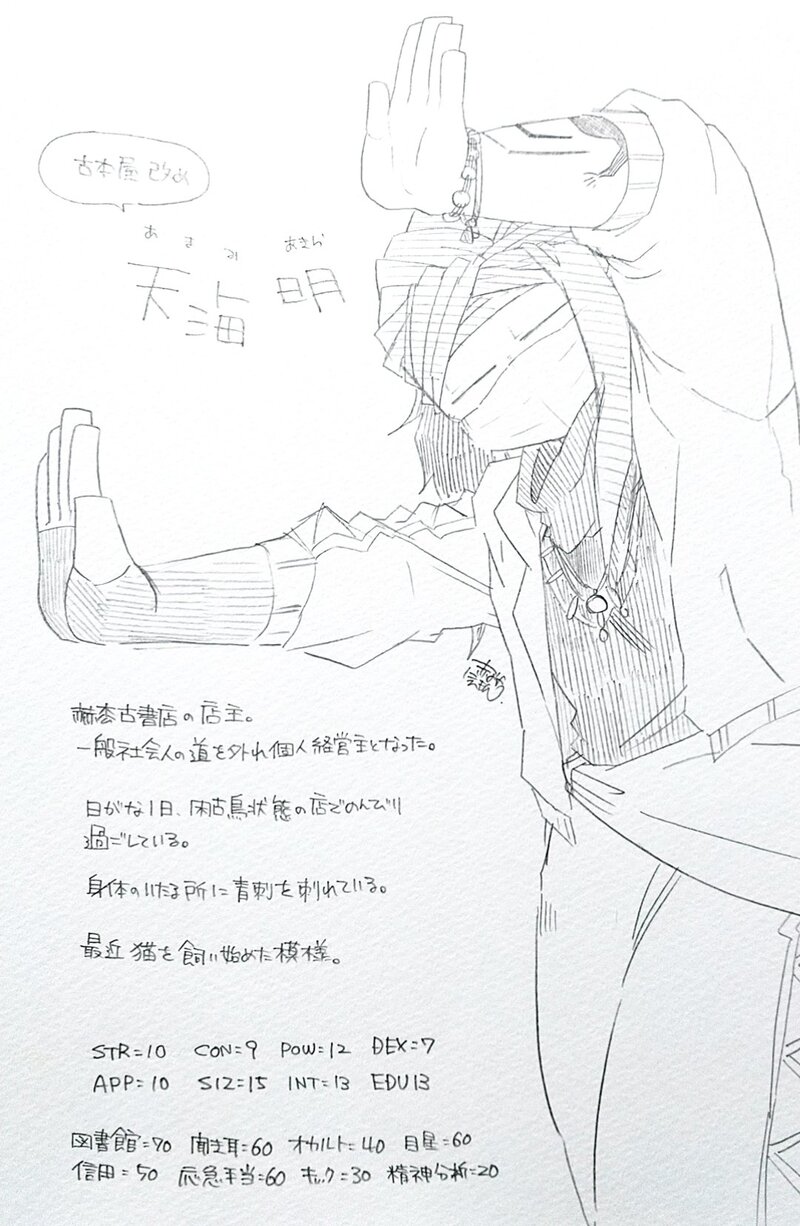 古本屋改め
あまみ あきら
天海 明
古書店の店主。
一般社会人の道を外れ個人経営主となった。
日がな1日、閑古鳥状態の店でのんびり
過ごしている。
身体のいたる所に青刺を刺れている。
最近猫を飼い始めた模様。
STR=10 CON=9 POW=12 DEX=7
APP=10 SIZ=15 INT=13 EDU13
図書館=70 聞き耳=60 オカルト=40 目星=60
信用=50 応急手当=60 キック=30 精神分析=20